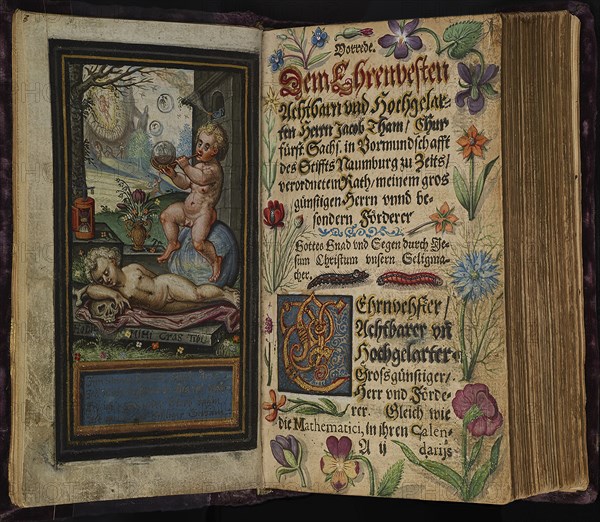 HiHi Cras tibi
Vorrede.
Dem Ehrenvesten
Achtbarn vnd Hochgelar-
ten Herrn Jacob Tham/ Chur
fürst. Sachs. in Vormundschafft
des Stiffts Naumburg zu Zeits/
verordnetem Rath/ meinem gros
günstigen Herrn vnnd be-
sondern Förderer
Gottes Gnad vnd Segen durch Je-
sum Christum vnsern Seligma-
cher.
Ehrnvehster/
Achtbarer vñ
Hochgelarter
Grosgünstiger/
Herr vnd Förde-
rer. Gleich wie
die Mathematici, in ihren Calen-
A ij darijs